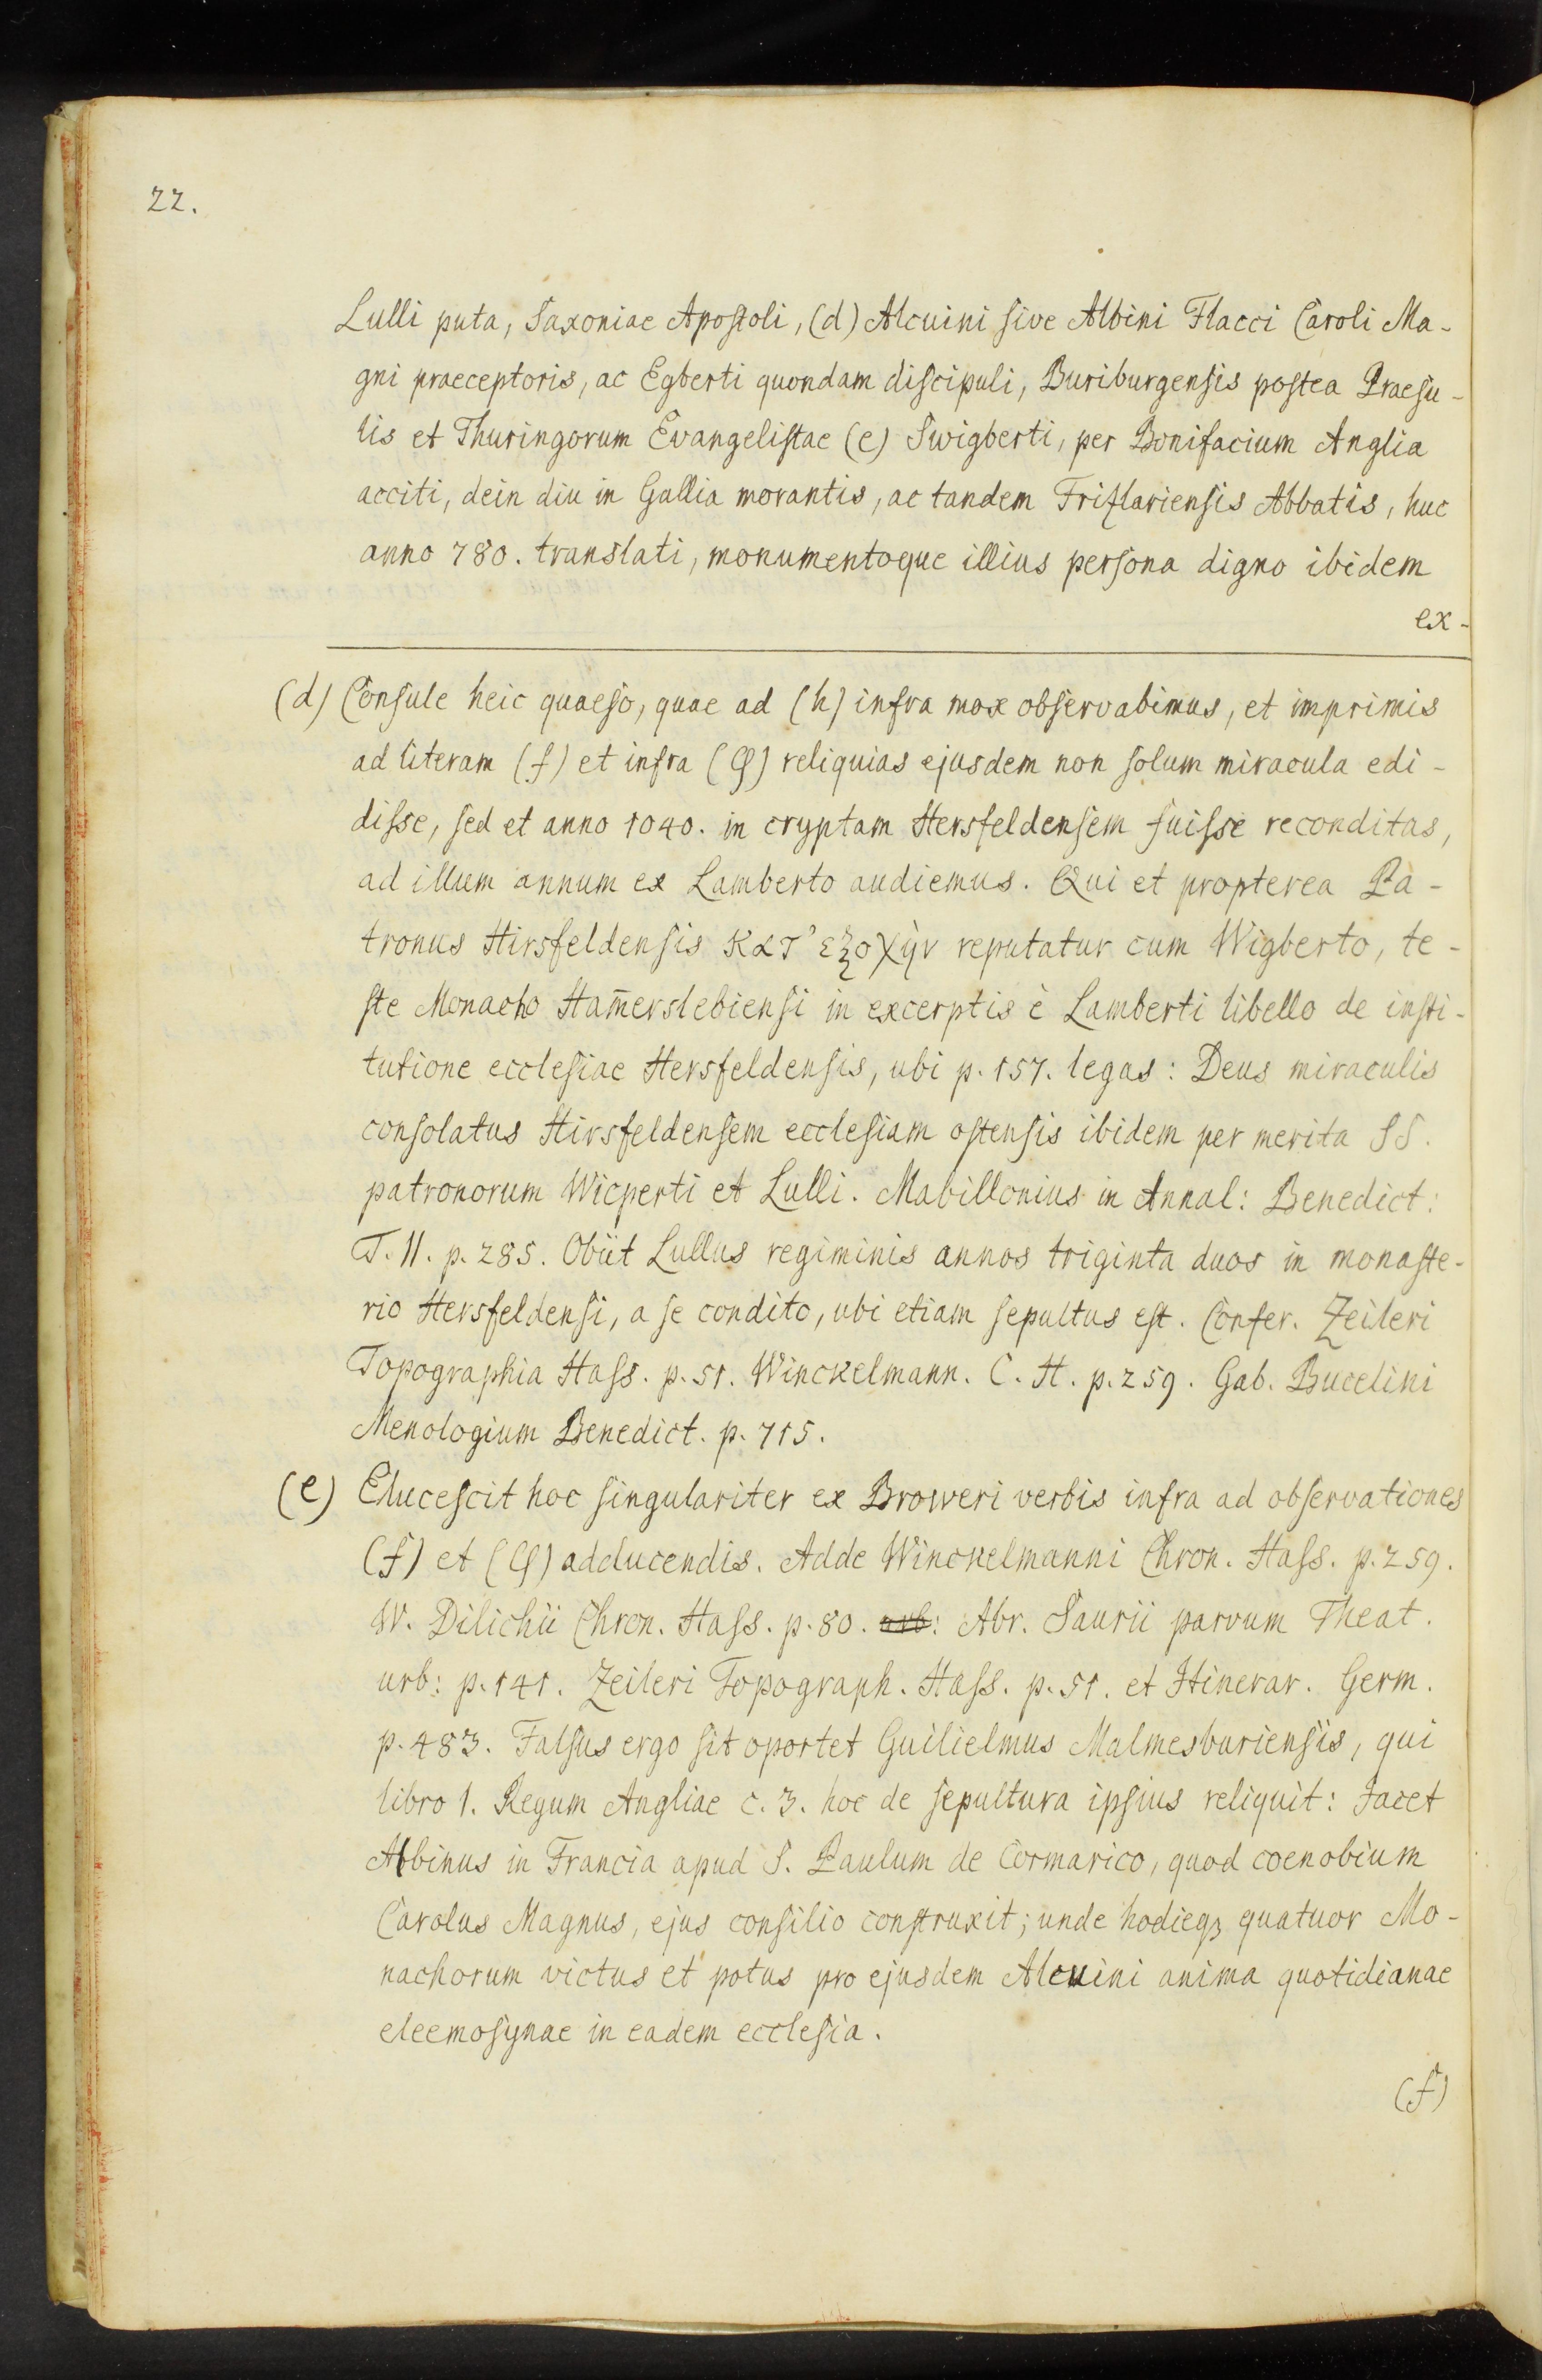 22.
Lulli puta, Saxoniae Apostoli, (d) Alcuini sive Albini Flacci Caroli Ma-
gni praeceptoris, ac Egberti quondam discipuli, Buriburgensis postea Praesu-
lis et Thuringorum Evangelistae (e) Swigberti, per Bonifacium Anglia
acciti, dein diu in Gallia morantis, ac tandem Frizlariensis Abbatis, huc
anno 780. translati, monumentoque illius persona digno ibidem
ex-
(d) Consule heic quaeso, quae ad (h) infra mox observabimus, et imprimis
ad literam (f) et infra (φ) reliquias ejusdem non solum miracula edi-
disse, sed et anno 1040. in cryptam Hersfeldensem fuisse reconditas,
ad illum annum ex Lamberto audiemus. Qui et propterea Pa-
tronus Hirsfeldensis κατ' εξοχὴν reputatur cum Wigberto, te-
ste Monacho Ham̄erslebiensi in excerptis è Lamberti libello de insti-
tutione ecclesiae Hersfeldensis, ubi p. 157. legas: Deus miraculis
consolatus Hirsfeldensem ecclesiam ostensis ibidem per merita SS.
patronorum Wicperti et Lulli. Mabillonius in Annal: Benedict:
T. II. p. 285. Obiit Lullus regiminis annos triginta duos in monaste-
rio Hersfeldensi, a se condito, ubi etiam sepultus est. Confer. Zeileri
Topographia Hass. p. 51. Winckelmann. C. H. p. 259. Gab. Bucelini
Menologium Benedict. p. 715.
(e) Elucescit hoc singulariter ex Broweri verbis infra ad observationes
(f) et (φ) adducendis. Adde Winckelmanni Chron. Hass. p. 259.
W. Dilichii Chron. Hass. p. 80. urb: Abr. Saurii parvum Theat.
urb: p. 141. Zeileri Topograph. Hass. p. 51. et Itinerar. Germ.
p. 483. Falsus ergo sit oportet Guilielmus Malmesburiensis, qui
libro 1. Regum Angliae c. 3. hoc de sepultura ipsius reliquit: Jacet
Albinus in Francia apud S. Paulum de Cormarico, quod coenobium
Carolus Magnus, ejus consilio construxit; unde hodieqꝫ quatuor Mo-
nachorum victus et potus pro ejusdem Alcuini anima quotidianae
eleemosynae in eadem ecclesia.
(f)